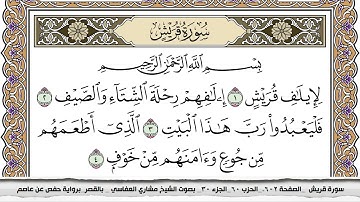 سورة قريش
بِسْمِ ٱللَّهِ ٱلرَّحْمَٰنِ ٱلرَّحِيمِ
لِإِيلَٰفِ قُرَيْشٍ ١ إِۦلَٰفِهِمْ رِحْلَةَ ٱلشِّتَآءِ وَٱلصَّيْفِ ٢
فَلْيَعْبُدُوا۟ رَبَّ هَٰذَا ٱلْبَيْتِ ٣ ٱلَّذِىٓ أَطْعَمَهُم
مِّن جُوعٍ وَءَامَنَهُم مِّنْ خَوْفٍۭ ٤
سورة قريش الصفحة ٦٠٢ الحزب ٦٠ الجزء ٣٠ بصوت الشيخ مشاري العفاسي بالقصر برواية حفص عن عاصم